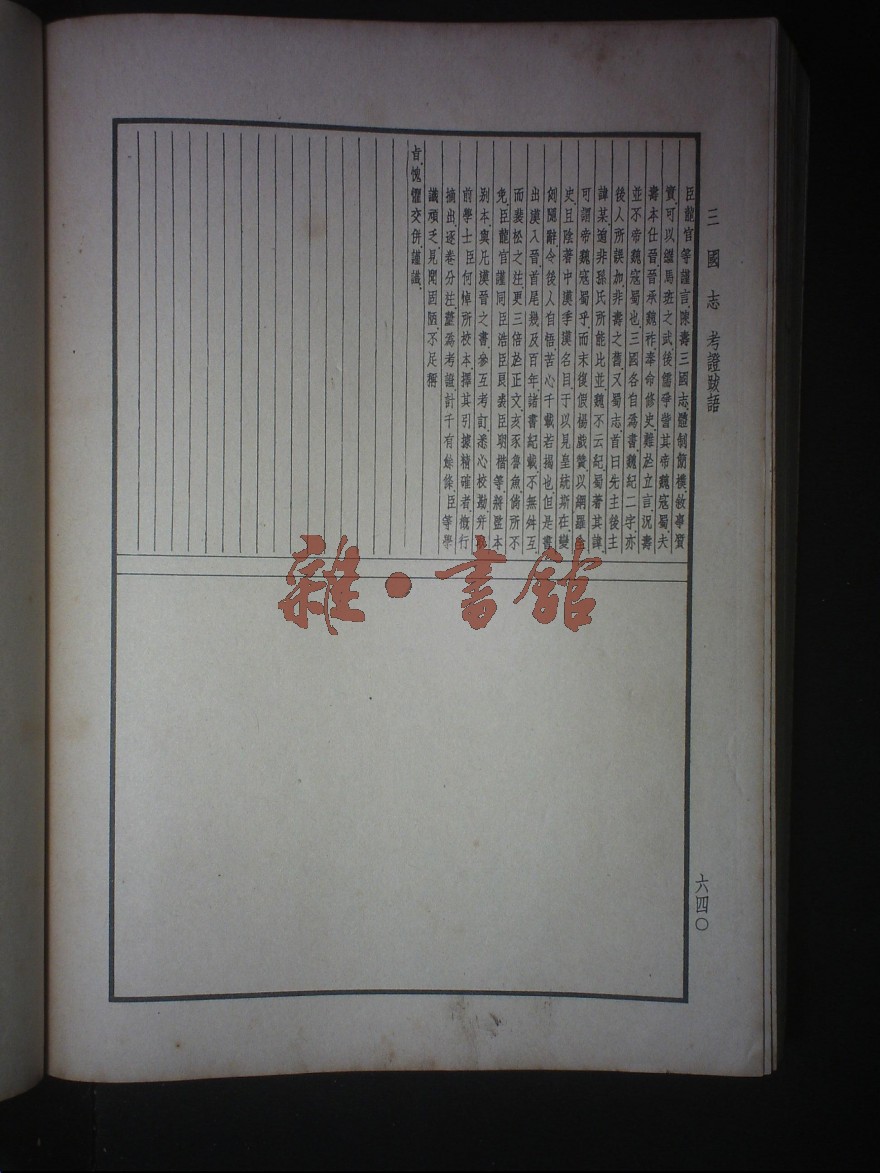 三國志 考證跋語
臣龍官等謹言陳壽三國志體制簡樸敘事質
實可以繼馬班之武後儒爭訾其帝魏寇蜀夫
壽本仕晉晉承魏祚奉命修史難於立言況壽
並不帝魏寇蜀也三國各自為書魏紀二字亦
後人所誤加非壽之舊又蜀志首曰先主後主
諱某迥非孫氏所能比並魏不云紀蜀著其諱
可謂帝魏寇蜀乎而末復假楊戲贊以網羅
史且陰著中漢季漢名目于以見皇統斯在變
例聞辭令後人自悟苦心千載若揭也但是書
出漢入晉首尾幾及百年諸書紀載不無舛互
而裴松之注更三倍於正文亥豕魯魚倘所不
免臣龍官謹同臣浩臣良裘臣明楷等將監本
別本與凡漢晉之書參互考訂悉心校勘并
前學士臣何焯所校本擇其引據精確者概行
摘出逐卷分注彙為考證計千有餘條臣等學
識頑乏見聞固陋不足稱
旨愧懼交併謹識
六四〇
雜·書館